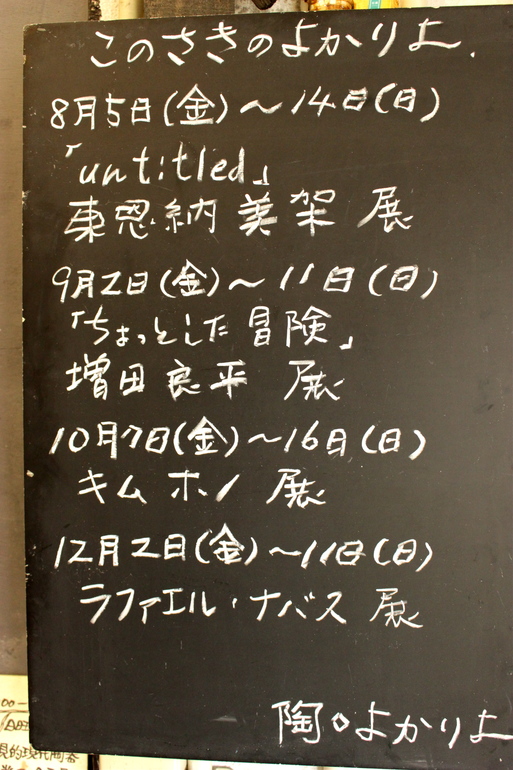 このさきのよかりよ.
8月5日(金)～14日(日)
「untitled」
東恩納 美架 展
9月2日(金)～11日(日)
「ちょっとした冒険」
増田良平 展
10月7日(金)～16日(日)
キム ホノ 展
12月2日(金)～11日(日)
ラファエル・ナバス 展
陶◇よかりよ